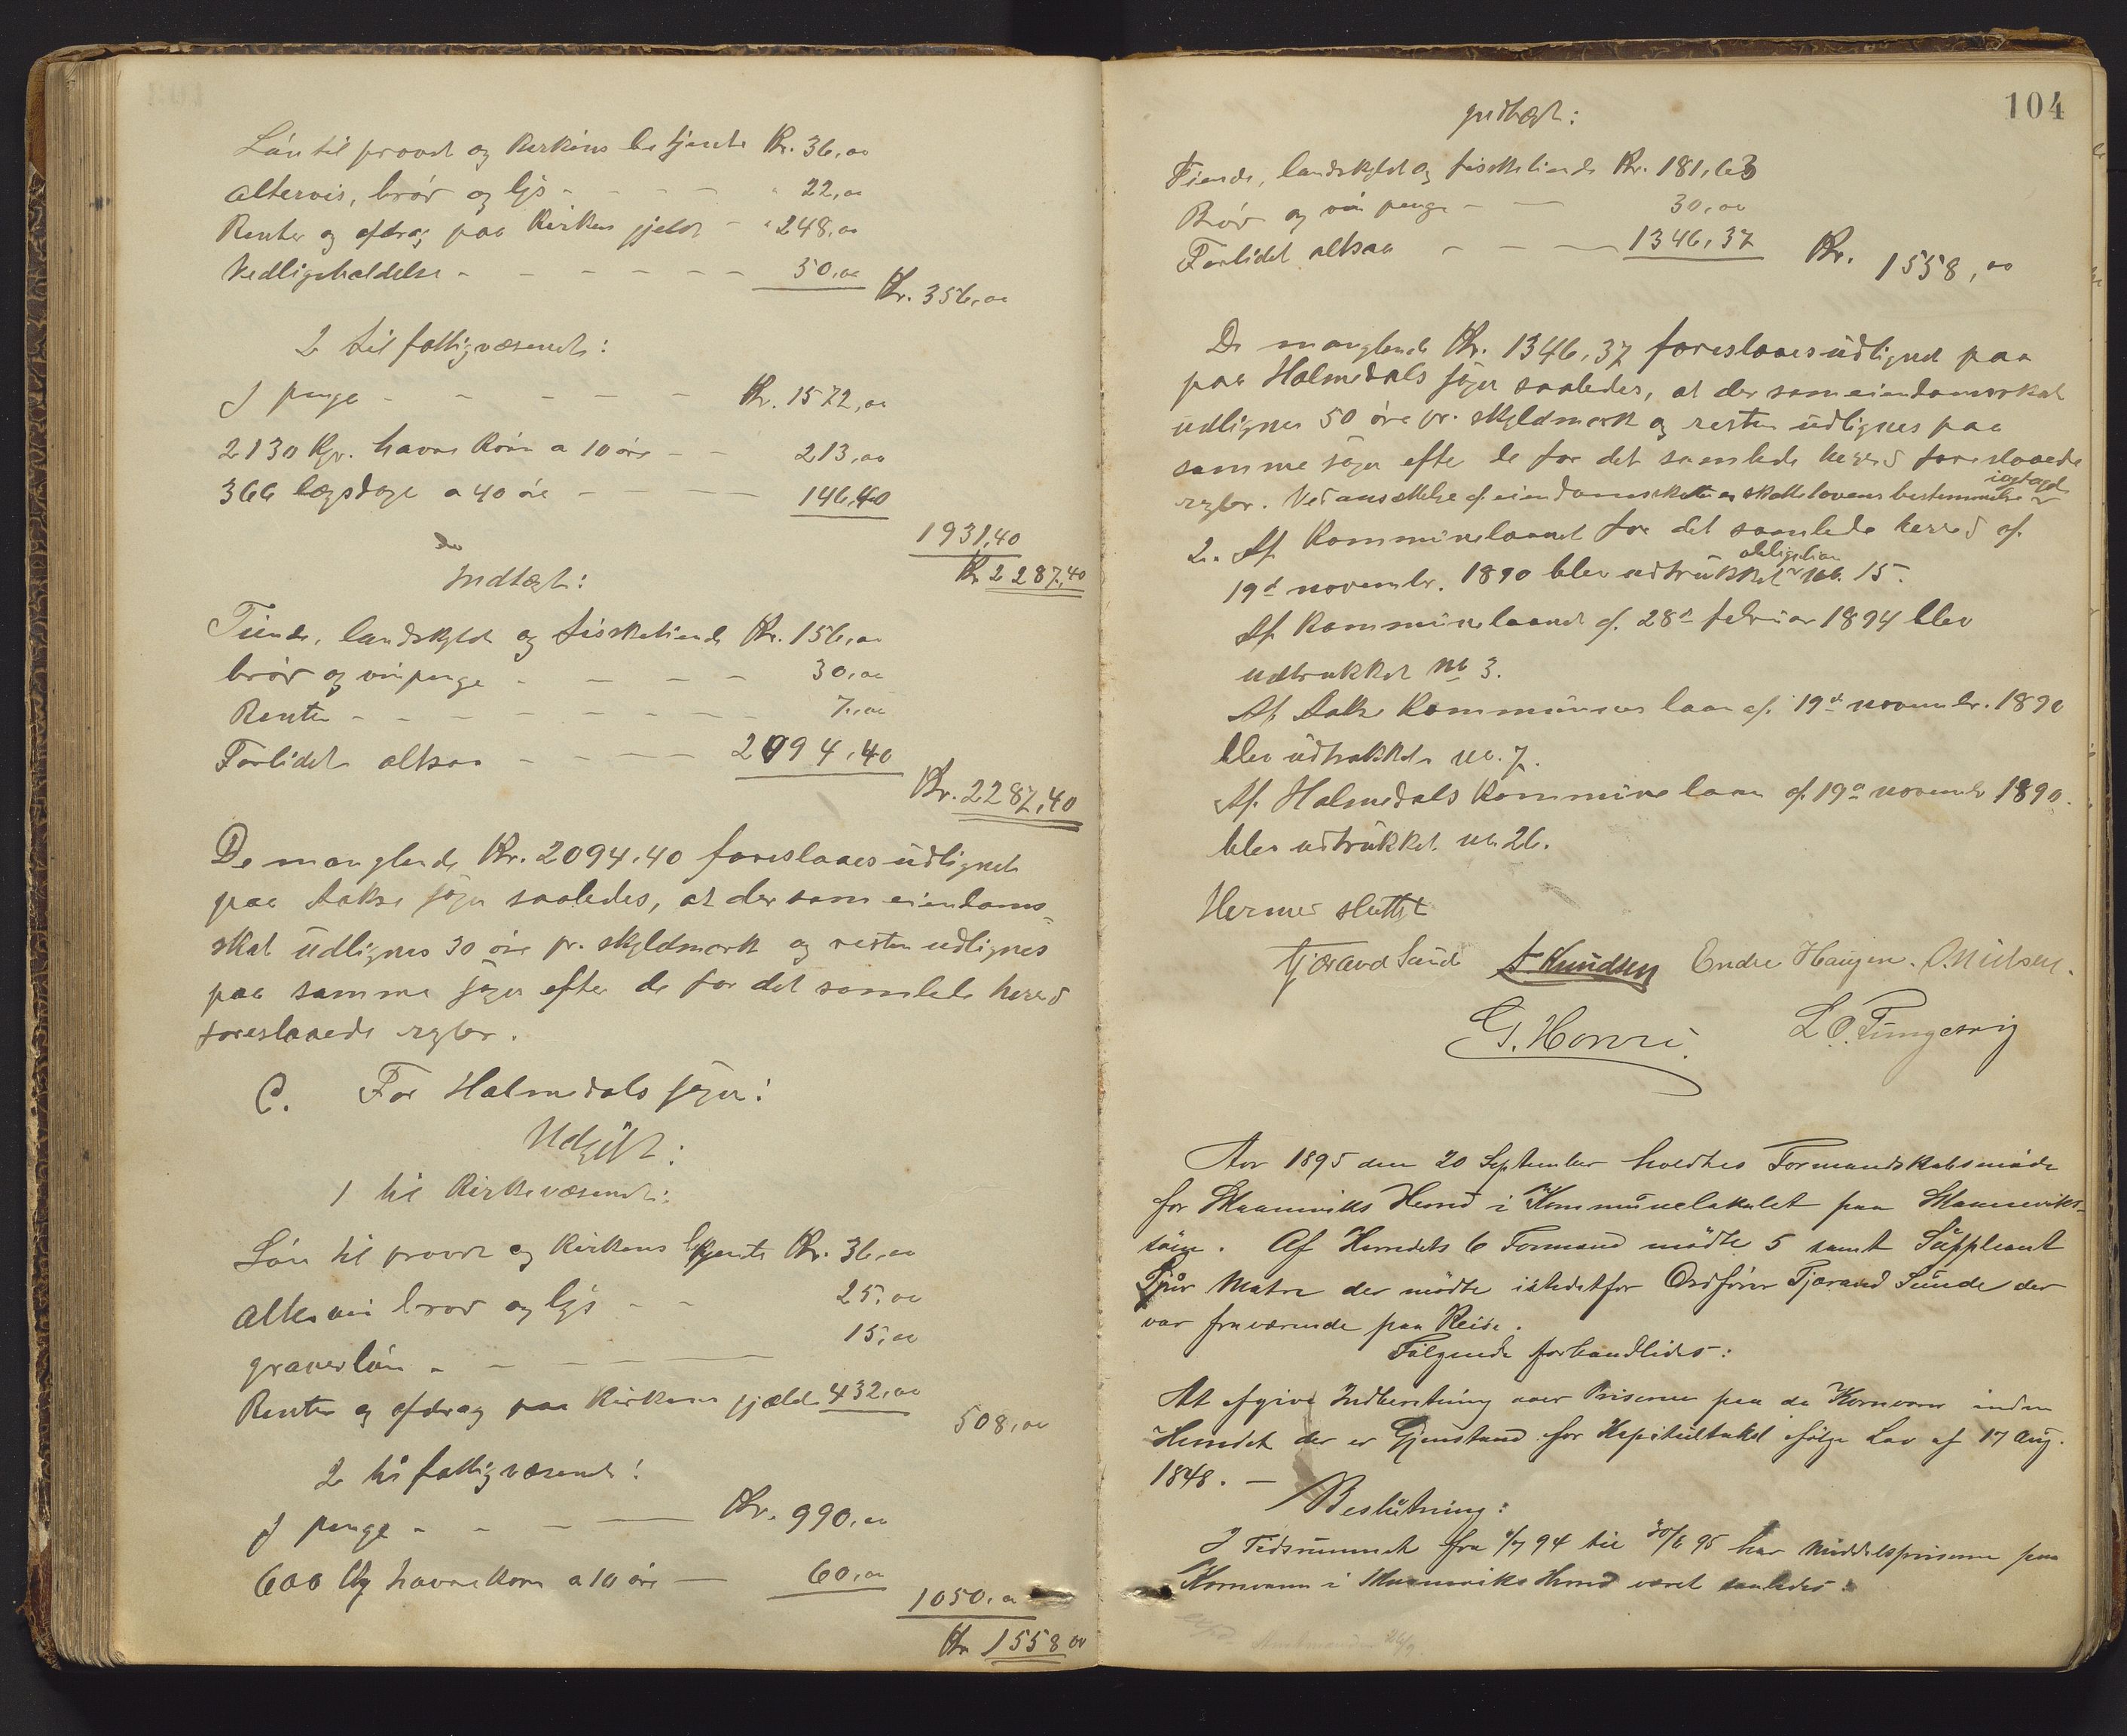 Lön til provst og kirkens betjente Kr. 36,00
altervin, bröd og lys - - - - " 22,00
Renter og afdrag paa kirkens gjeld - " 248,00
Vedligeholdelse - - - - - - 50,00
Kr. 356,00
2 til fattigvæsenet:
I penge - - - - - Kr. 1572,00
2130 Kgr. havre korn a 10 öre - - 213,00
366 lægsdage a 40 öre - - - - 146,40
1931,40
Kr. 2287,40
Indtægt:
Tiende, landskyld og fisketiende Kr. 156,00
bröd og vinpenge - - - - 30,00
Renter - - - - - - - - 7,00
Forlidet altsaa - - - - 2094,40
Kr. 2287,40
De manglende Kr. 2094,40 foreslaaes udlignet
paa Aakre sogn saaledes, at der som eiendoms-
skat udlignes 30 öre pr. skyldmark og resten udlignes
paa samme sogn efter de for det samlede herred
foreslaaede regler.
C. For Halmedals sogn:
Udgift:
1 til kirkevæsenet:
Lön til provst og kirkens betjente Kr. 36,00
altervin bröd og lys - - 25,00
graverlön - - - - 15,00
Renter og afdrag paa kirkens gjæld 432,00
508,00
2 til fattigvæsenet:
I penge - - - - Kr. 990,00
600 Kg havrekorn a 10 öre - 60,00
1050,00
Kr 1558 00
104
Indtægt:
Tiende, landskyld og fisketiende Kr. 181,63
Bröd og vin penge - - 30,00
Forlidet altsaa - - - 1346,37
Kr. 1558,00
De manglende Kr. 1346,37 foreslaaes udlignet paa
paa Halmedals sogn saaledes, at der som eiendomsskat
udlignes 50 öre pr. skyldmark og resten udlignes paa
samme sogn efter de for det samlede herred foreslaaede
regler. Ved ansættelse af eiendomsskatten er skattelovens bestemmelser iagtaget
2. Af Kommunelaanet for det samlede herred af
19d novembr. 1890 blev udtrukket obligation No. 15.
Af Kommunelaanet af 28d februar 1894 blev
udtrukket No 3.
Af Aakre Kommunes laan af 19d novembr. 1890
blev udtrukket No. 7.
Af Halmedals Kommune laan af 19d novembr 1890.
blev udtrukket No 26.
Hermed sluttet
Tjærand Sunde A Knudsen Endre Haugen. O. Nielsen.
G. Honri. L. O. Tungesvig
Aar 1895 den 20 September holdtes Formandskabsmöde
for Skaaneviks Herred i Kommunelokalet paa Skaaneviks-
söien. Af Herredets 6 Formænd mödte 5 samt Suppleant
Sjur Matre der mödte istedetfor Ordförer Tjærand Sunde der
var fraværende paa Reise.
Fölgende forhandledes:
At afgive Indberetning over Priserne paa de Kornvarer inden
Herredet der er Gjenstand for Kapitelstakst ifölge Lov af 17 Aug.
1848. -
Beslutning:
I Tidsrummet fra 1/7 94 til 30/6 95 har Middelspriserne paa
Kornvarer i Skaaneviks Herred været saaledes:
exp. Amtmanden 26/9